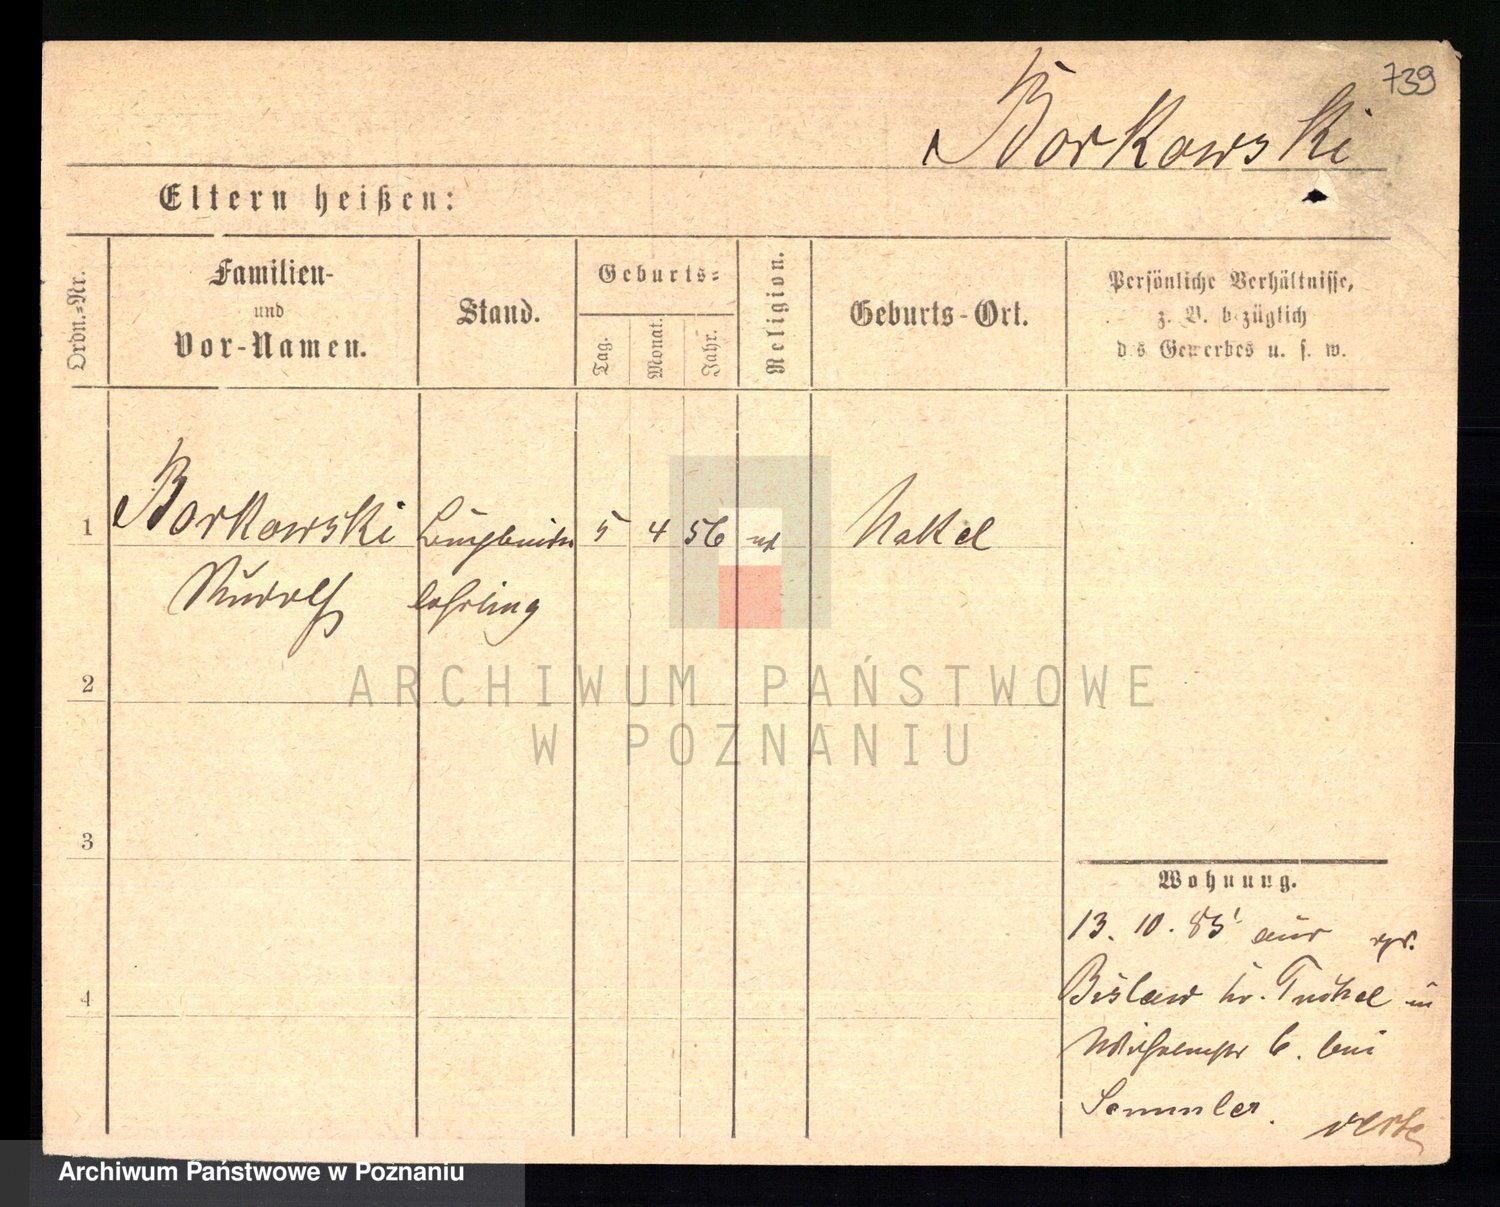 739
Borkowski
Eltern heißen:
Ordn.-Nr.
Familien-
und
Vor-Namen.
Stand.
Geburts-
Tag.
Monat.
Jahr.
Religion.
Geburts-Ort.
Persönliche Verhältnisse,
z. B. bezüglich
des Gewerbes u. s. w.
1
Borkowski
5 4 56
Nakel
Rudolf
lehrling
2
ARCHIWUM PAŃSTWOWE
W POZNANIU
3
Wohnung.
13. 10. 85 aus
4
Bislaw Kr. Tuchel in
6. bei
Semmler.
Archiwum Państwowe w Poznaniu